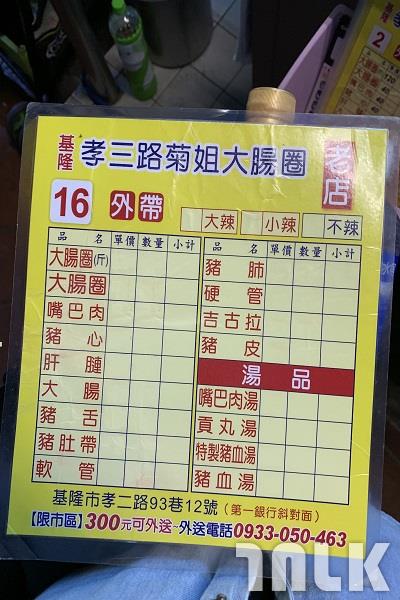 基隆 孝三路菊姐大腸圈 老店
16 外帶
大辣 小辣 不辣
品名 單價 數量 小計
大腸圈(斤)
大腸圈
嘴巴肉
豬心
肝腱
大腸
豬舌
豬肚帶
軟管
品名 單價 數量 小計
豬肺
硬管
吉古拉
豬皮
湯品
嘴巴肉湯
貢丸湯
特製豬血湯
豬血湯
基隆市孝二路93巷12號(第一銀行斜對面)
【限市區】300元可外送~外送電話0933-050-463
基隆
2
大腸圈
大腸圈